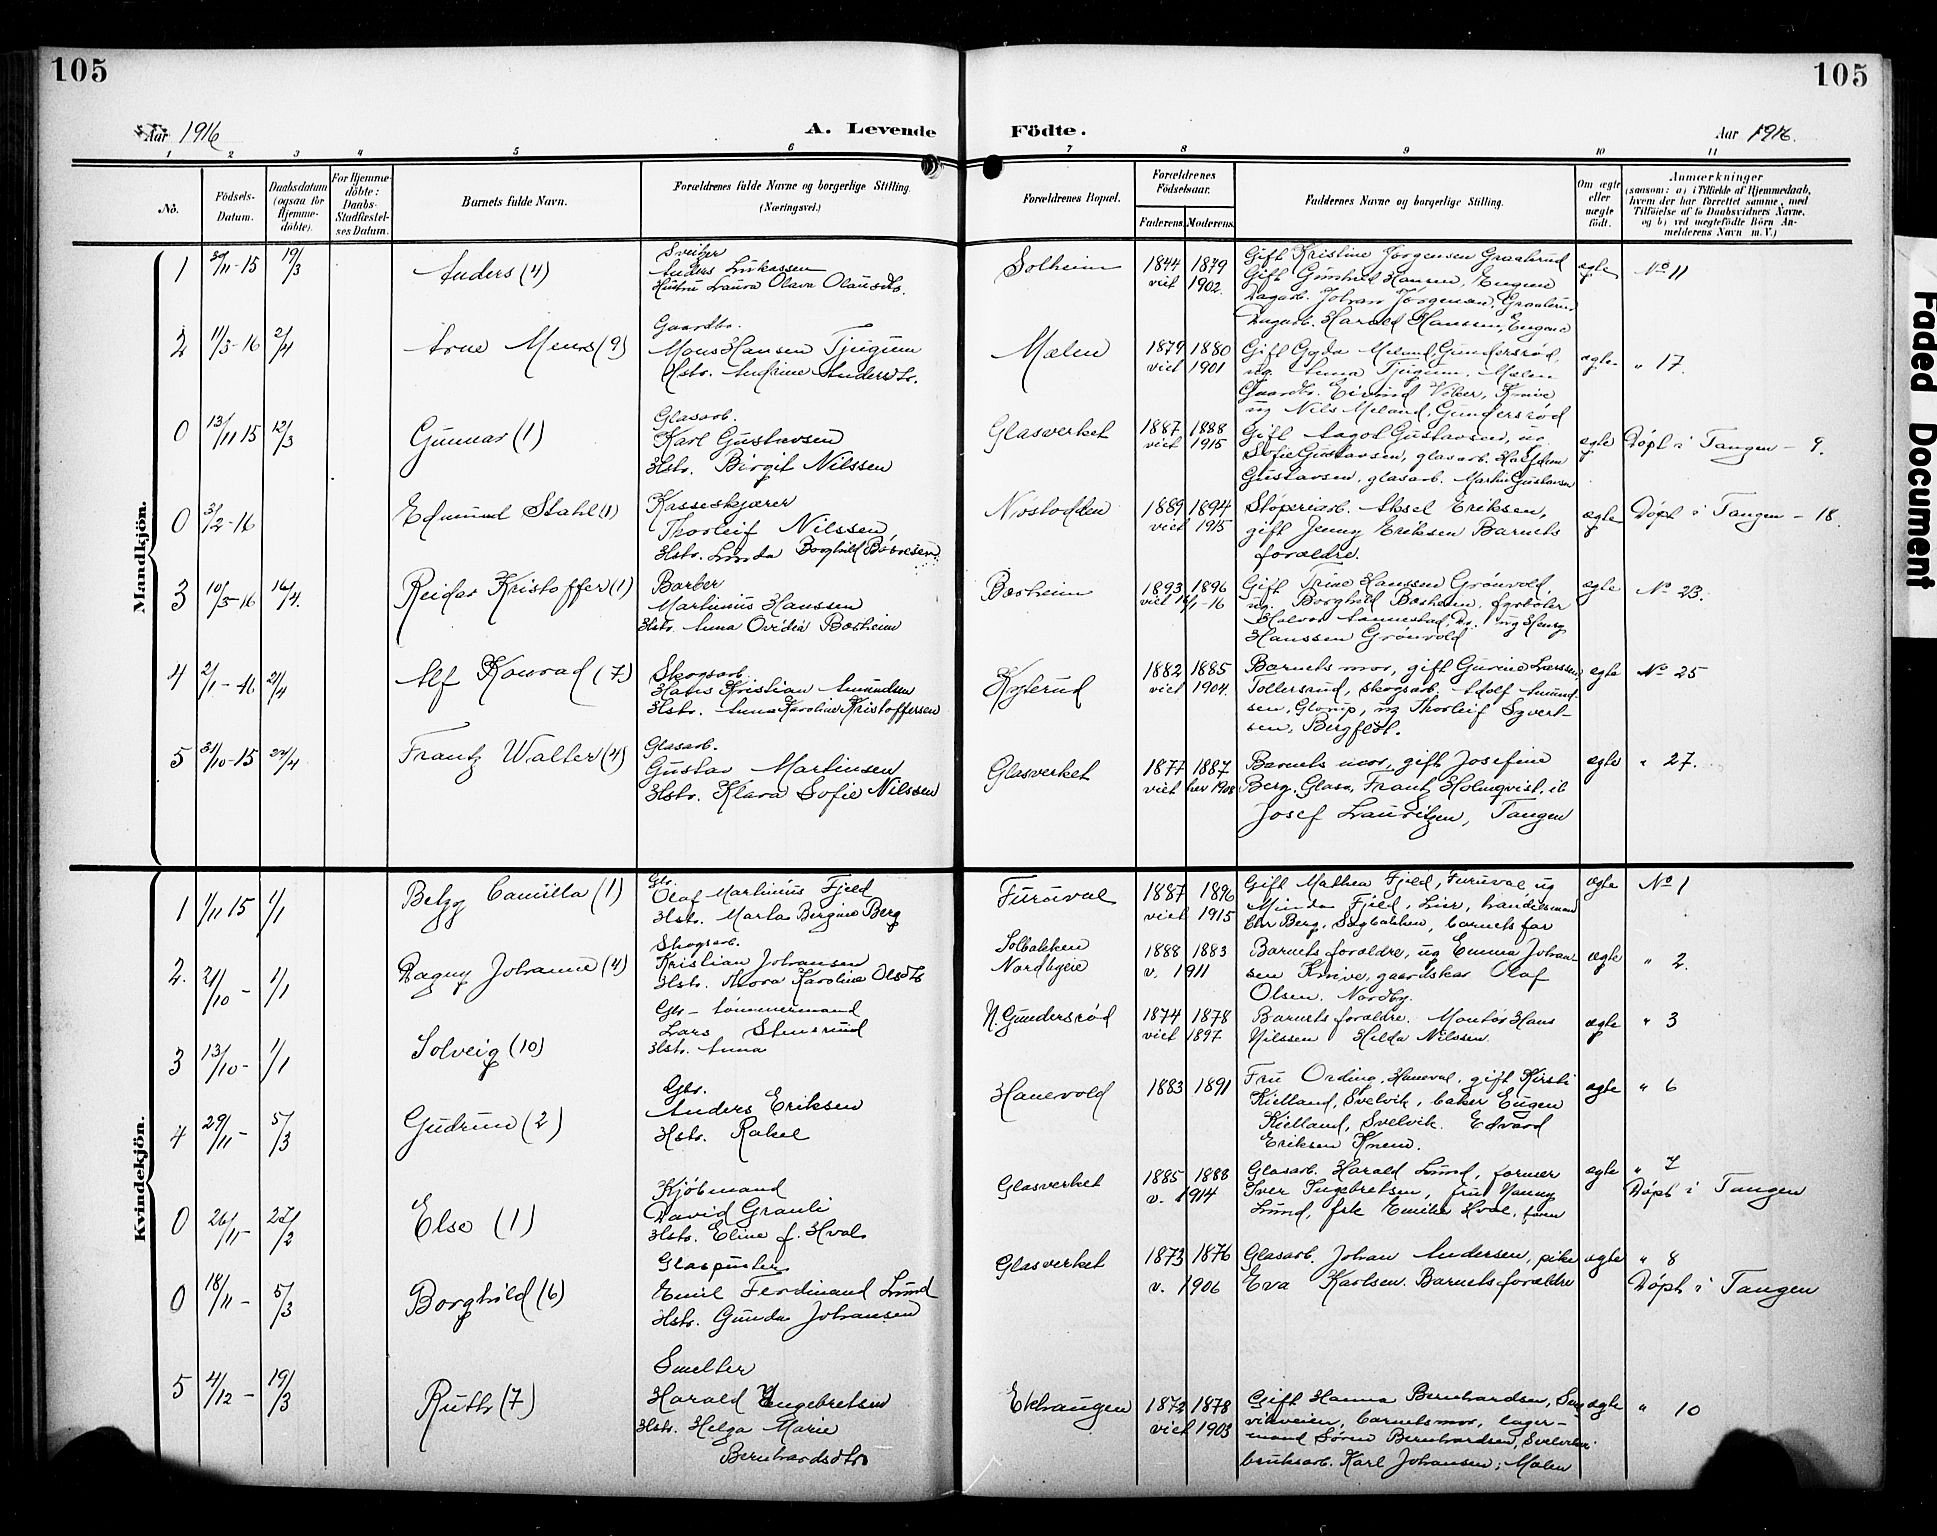 105
105
Aar 1916
A. Levende
Födte.
Aar 1916.
1 2 3 4 5 6 7 8 9 10 11
No.
Födsels-Datum.
Daabsdatum (ogsaa for Hjemme-döbte).
For Hjemme-döbte: Daabs-Stadfæstel-ses Datum.
Barnets fulde Navn.
Forældrenes fulde Navne og borgerlige Stilling.
(Næringsvei.)
Forældrenes Bopæl.
Forældrenes Födselsaar.
Faderens. Moderens.
Faddernes Navne og borgerlige Stilling.
Om ægte eller uægte födt.
Anmærkninger
(saasom: a) i Tilfælde af Hjemmedaab, hvem der har forrettet samme, med Tilföielse af to Daabsvidners Navne, og b) ved uegtefödte Börn Anmelderens Navn m. V.)
Mandkjön.
1 30/11-15 19/3 Anders (4)
Sveiser
Anders Lukassen
Hustru Laura Olava Olausdtr.
Solheim 1844 1879
viet 1902.
Gift Kristine Jørgensen Graabrud
Gift Gunhild Hansen, Eugene
Dagarb. Johan Jørgensen, Graabrud
Dagarb. Harald Hanssen, Eugene
ægte No 11
2 11/3-16 2/4 Arne Mens (9)
Gaardbr.
Mons Hansen Tjugum
Hstr. Andrine Andersdtr.
Mælen 1879 1880
viet 1901
Gift Gyda Meland, Gundersrød,
ug. Anna Tjugum, Mælen
Gaardbr. Eivind Viber, Knive
ug Nils Meland, Gundersrød
ægte " 17.
0 13/11 15 12/3 Gunnar (1)
Glasarb.
Karl Gustavsen
Hstr. Birgit Nilssen
Glasverket 1887 1888
viet 1915
Gift Aagot Gustavsen, ug.
Sofie Gustavsen, glasarb. Halfdan
Gustavsen, glasarb. Martin Gustavsen
ægte Døpt i Tangen - 9.
0 3/2-16 Edmund Stahl (1)
Kasseskjærer
Thorleif Nilssen
Hstr. Linda Borghild Børresen
Nøstodden 1889 1894
viet 1915
Støperiarb. Aksel Eriksen,
gift Jenny Eriksen Barnets
forældre.
ægte Døpt i Tangen - 18.
3 10/3-16 16/4. Reidar Kristoffer (1)
Barber
Martinius Hanssen
Hstr. Anna Ovidia Bøsheim
Bøsheim 1893 1896
viet 16/1-16
Gift Trine Hanssen Grønvold,
ug. Borghild Bøsheim, fyrbøter
Halvor Aannestad, Dr. ug Henry
Hanssen Grønvold
ægte No 23.
4 2/1-16 21/4 Alf Konrad (7)
Skogsarb.
Hans Kristian Amundsen
Hstr. Anna Karoline Kristoffersen
Kylerud 1882 1885
viet 1904.
Barnets mor, gift Gurine Larssen,
Tollersrud, skogsarb. Adolf Amund-
sen, Glorup, ug Thorleif Syvert-
sen, Bergflot.
ægte No 25
5 31/10-15 24/4 Frantz Walter (4)
Glasarb.
Gustav Martinsen
Hstr. Klara Sofie Nilssen
Glasverket 1877 1887
viet her 1908
Barnets mor, gift Josefine
Berg, Glasv, Frantz Holmqvist, ib
Josef Lauritzen, Tangen
ægte " 27.
Kvindekjön.
1 1/11 15 1/1 Betzy Camilla (1)
Gbr.
Olaf Martinius Fjeld
Hstr. Marta Bergine Berg
Furuval 1887 1896
viet 1915
Gift Mathea Fjeld, Furuval, ug
Minda Fjeld, Lier, handelsmand
Chr Berg, Sagbakken, barnets far
ægte No 1
2. 21/10- 1/1 Dagny Johanne (4)
Skogsarb.
Kristian Johansen
Hstr. Thora Karoline Olsdtr
Solbakken
Nordbyeie
1888 1883
v. 1911
Barnets forældre, ug Emma Johan-
sen Knive, gaardskar Olaf
Olsen. Nordby.
ægte " 2.
3 13/10- 1/1 Solveig (10)
Gbr - tømmermand
Lars Stensrud
Hstr. Anna
N. Gundersrød 1874 1878
viet 1897
Barnets forældre. Montør Hans
Nilssen Hilda Nilssen.
ægte " 3
4 29/11- 5/3 Gudrun (2)
Gbr.
Anders Eriksen
Hstr. Rakel
Hanevold 1883 1891
Fru Ording, Haneval, gift Kirsti
Kielland, Svelvik, baker Eugen
Kielland, Svelvik. Edvard
Eriksen Knem.
ægte " 6
0 26/11- 27/2 Else (1)
Kjøbmand
David Grauli
Hstr. Eline f. Hval
Glasverket 1885 1888
v. 1914
Glasarb. Harald Lund, former
Iver Ingebretsen, fru Nanny
Lund, frk Emilie Hval, faren
ægte " 7
Døpt i Tangen
0 18/11- 5/3 Borghild (6)
Glaspuster
Emil Ferdinand Lund
Hstr. Gunda Johansen
Glasverket 1873 1876
v. 1906
Glasarb. Johan Andersen, pike
Eva Karlsen. Barnets forældre
ægte " 8
Døpt i Tangen
5 4/12- 19/3 Ruth (7)
Smelter
Harald Engebretsen
Hstr. Helga Marie
Bernhardsdtr
Ekhaugen 1872 1878
viet 1903
Gift Hanna Bernhardsen, Svel-
vikveien, barnets mor, lager-
mand Søren Bernhardsen, Svelvikv.
bruksarb. Karl Johansen, Mælen
ægte " 10
Faded Document